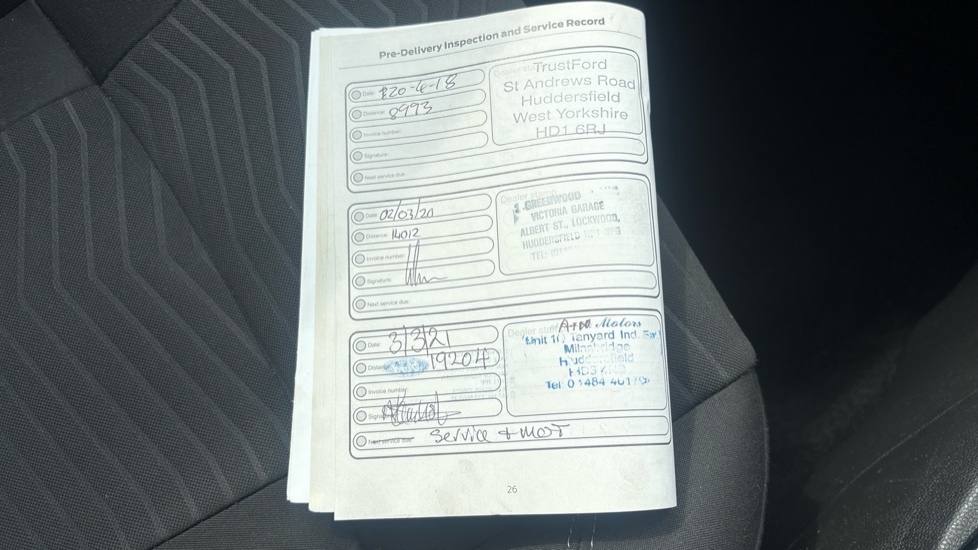 Pre-Delivery Inspection and Service Record
Date: 20-4-18
Distance: 8993
Invoice number:
Signature:
Next service due:
Dealer stamp
TrustFord
St Andrews Road
Huddersfield
West Yorkshire
HD1 6RJ
Date: 02/03/20
Distance: 14012
Invoice number:
Signature:
Next service due:
Dealer stamp
GREENWOOD
VICTORIA GARAGE
ALBERT ST., LOCKWOOD,
HUDDERSFIELD
TEL:
Date: 3/3/21
Distance: 19204
Invoice number:
Signature:
Next service due: Service + MOT
Dealer stamp
Motors
Unit Tanyard Ind.
Milnsbridge
Huddersfield
HD3
Tel: 01484
26